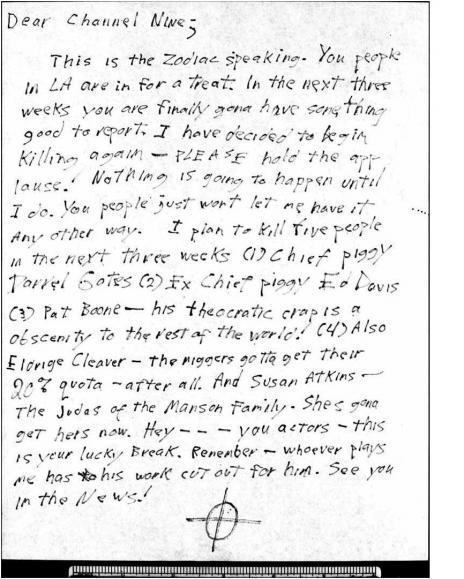 Dear Channel Nine;
This is the Zodiac speaking. You people
in LA are in for a treat. In the next three
weeks you are finally gona have something
good to report. I have decided to begin
killing again – PLEASE hold the app
lause! Nothing is going to happen until
I do. You people just wont let me have it
any other way. I plan to kill five people
in the next three weeks (1) Chief piggy
Darrel Gates (2) Ex Chief piggy Ed Davis
(3) Pat Boone – his theocratic crap is a
obscenity to the rest of the world! (4) Also
Eldrige Cleaver – the niggers gotta get their
20% quota – after all. And Susan Atkins –
The Judas of the Manson Family. Shes gona
get hers now. Hey – – – you actors – this
is your lucky Break. Remember – whoever plays
me has his work cut out for him. See you
in the News!